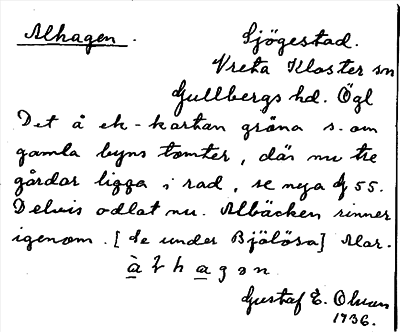 Alhagen.
Sjögestad.
Vreta Kloster sn
Gullbergs hd. Ögl
Det å ek-kartan gröna s. om
gamla byns tomter, där nu tre
gårdar ligga i rad, se nya 55.
Delvis odlat nu. Albäcken rinner
igenom. [Se under Bjölösa] Alar.
Gustaf E. Olsson
1936.